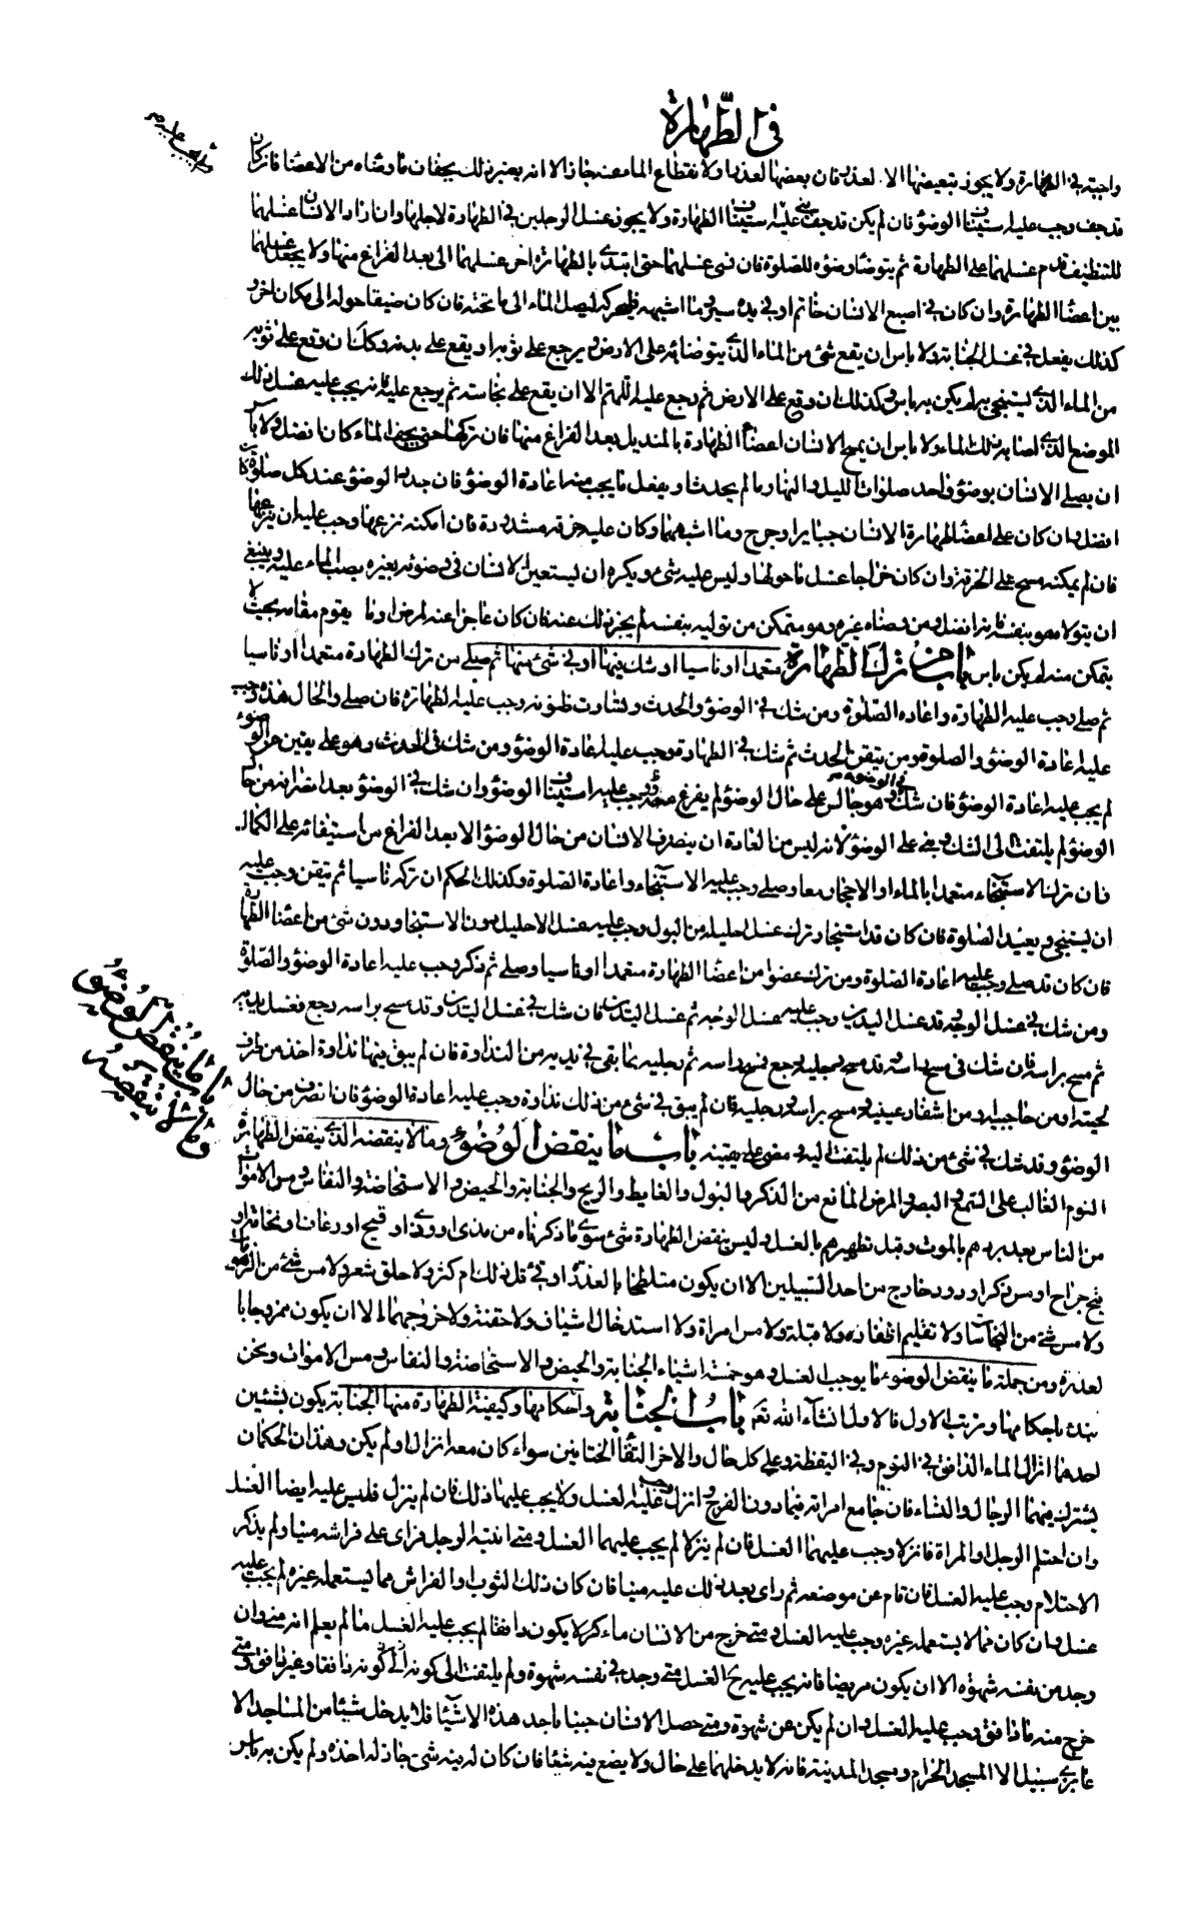 في الطهارة
واجبة في الطهارة ولا يجوز تبعيضها الا لعذر فان بعضها لعذر او لانقطاع الماء عنه جاز الا انه يعتبر ذلك بجفاف ما وضأه من الاعضاء فان كان
قد جف وجب عليه استيناف الوضوء فان لم يكن قد جف بنى عليه استيناف الطهارة ولا يجوز غسل الرجلين في الطهارة لاجلها وان اراد الانسان غسلهما
للتنظيف قدم غسلهما على الطهارة ثم يتوضأ وضوئه للصلوة فان نسى غسلهما حتى ابتدى بالطهارة اخر غسلهما الى بعد الفراغ منها ولا يجعل غسلهما
بين اعضاء الطهارة وان كان في اصبع الانسان خاتم او في يده سير وما اشبهه فليحركه ليصل الماء الى ما تحته فان كان ضيقا حوله الى مكان اخر و
كذلك يفعل في غسل الجنابة ولا باس ان يقع شئ من الماء الذي يتوضا به على الارض ويرجع على ثوبه او يقع على بدنه وكذلك ان وقع على ثوبه
من الماء الذي يستنجى به لم يكن به باس وكذلك ان وقع على الارض ثم رجع عليه اللهم الا ان يقع على نجاسة ثم يرجع عليه فانه يجب عليه غسل ذلك
الموضع الذي اصابه ذلك الماء ولا باس ان يمسح الانسان اعضاء الطهارة بالمنديل بعد الفراغ منها فان تركها حتى يجف الماء كان افضل ولا باس
ان يصلى الانسان بوضوء واحد صلوات الليل والنهار ما لم يحدث او يفعل ما يجب منه اعادة الوضوء فان جدد الوضوء عند كل صلوة كان
افضل وان كان على اعضاء طهارة الانسان جبائر او جرح وما اشبههما وكان عليه خرقة مشدودة فان امكنه نزعها وجب عليه ان ينزعها
فان لم يمكنه مسح على الخرقة وان كان جراحا غسل ما حولها وليس عليه شئ ويكره ان يستعين الانسان في وضوئه بغيره بصب الماء عليه وينبغى
ان يتولاه هو بنفسه فانه افضل ومن وضأه غيره وهو متمكن من توليه بنفسه لم يجز ذلك عنه فان كان عاجزا عنه لمرض او ما يقوم مقامه بحيث لا
يتمكن منه لم يكن به باس باب من ترك الطهارة متعمدا او ناسيا او شك فيها او في شئ منها ثم صلى من ترك الطهارة متعمدا او ناسيا
ثم صلى وجب عليه الطهارة واعادة الصلوة ومن شك في الوضوء والحدث وتساوت ظنونه وجب عليه الطهارة فان صلى والحال هذه وجب
عليه اعادة الوضوء والصلوة ومن تيقن الحدث ثم شك في الطهارة وجب عليه اعادة الوضوء ومن شك في الحدث وهو على يقين من الوضوء
لم يجب عليه اعادة الوضوء فان شك في الوضوء وهو جالس على حال الوضوء لم يفرغ منه وجب عليه استيناف الوضوء وان شك في الوضوء بعد انصرافه من حال
الوضوء لم يلتفت الى الشك وبنى على الوضوء لانه ليس من العادة ان ينصرف الانسان من حال الوضوء الا بعد الفراغ من استيفائه على الكمال
فان ترك الاستنجاء متعمدا بالماء او الاحجار معا وصلى وجب عليه الاستنجاء واعادة الصلوة وكذلك الحكم ان تركه ناسيا ثم تيقن وجب عليه
ان يستنجى ويعيد الصلوة فان كان قد استنجا وترك غسل احليله من البول وجب عليه غسل الاحليل دون الاستنجاء ودون شئ من اعضاء الطهارة
فان كان قد صلى وجب عليه اعادة الصلوة ومن ترك عضوا من اعضاء الطهارة متعمدا او ناسيا وصلى ثم ذكر وجب عليه اعادة الوضوء والصلوة
ومن شك في غسل الوجه وقد غسل اليدين وجب عليه غسل الوجه ثم غسل اليدين فان شك في غسل اليدين وقد مسح براسه رجع فغسل يديه
ثم مسح براسه فان شك في مسح راسه وقد مسح رجليه رجع فمسح راسه ثم رجليه بما بقى في يديه من النداوة فان لم يبق فيهما نداوة اخذ من طرف
لحيته او من حاجبيه او من اشفار عينيه ومسح براسه ورجليه فان لم يبق في شئ من ذلك نداوة وجب عليه اعادة الوضوء فان انصرف من حال
الوضوء وقد شك في شئ من ذلك لم يلتفت اليه ومضى على يقينه باب ما ينقض الوضوء وما لا ينقضه الذي ينقض الطهارة
النوم الغالب على السمع والبصر والمرض المانع من الذكر والبول والغايط والريح والجنابة والحيض والاستحاضة والنفاس ومس الاموات
من الناس بعد بردهم بالموت وقبل تطهيرهم بالغسل وليس ينقض الطهارة شئ سوى ما ذكرناه من مذى او وذى او قيح او رعاف او نخامة او
فتح جراح او مس ذكر او دود خارج من احد السبيلين الا ان يكون متلطخا بالعذرة او قئ قل ذلك ام كثر ولا حلق شعر ولا مس شئ من الزهومات
ولا مس شئ من النجاسات ولا تقليم اظفار ولا قبلة ولا مس امراة ولا استدخال اشياف ولا حقنة ولا خروجهما الا ان يكون ممزوجا بال
لعذرة ومن جملة ما ينقض الوضوء ما يوجب الغسل وهو خمسة اشياء الجنابة والحيض والاستحاضة والنفاس ومس الاموات ونحن
نبدء باحكامها ونرتب الاول فالاول انشاء الله تعم باب الجنابة واحكامها وكيفية الطهارة منها الجنابة يكون بشيئين
احدهما انزال الماء الدافق في النوم وفي اليقظة وعلى كل حال والاخر التقاء الختانين سواء كان معه انزال او لم يكن وهذان الحكمان
يشترك فيهما الرجال والنساء فان جامع امراته فيما دون الفرج وانزل وجب عليه الغسل ولا يجب عليها ذلك فان لم ينزل فليس عليه ايضا الغسل
وان احتلم الرجل او المراة فانزلا وجب عليهما الغسل فان لم ينزلا لم يجب عليهما الغسل ومتى انتبه الرجل فراى على فراشه منيا ولم يذكر
الاحتلام وجب عليه الغسل فان قام عن موضعه ثم راى بعد ذلك عليه منيا فان كان ذلك الثوب او الفراش مما يستعمله غيره لم يجب عليه
غسل وان كان مما لا يستعمله غيره وجب عليه الغسل ومتى خرج من الانسان ماء كثير لا يكون دافقا لم يجب عليه الغسل ما لم يعلم انه منى وان
وجد من نفسه شهوة الا ان يكون مريضا فانه يجب عليه ح الغسل متى وجد في نفسه شهوة ولم يلتفت الى كونه دافقا وغير دافق ومتى
خرج منه ماء دافق وجب عليه الغسل وان لم يكن عن شهوة ومتى حصل الانسان جنبا باحد هذه الاشياء فلا يدخل شيئا من المساجد الا
عابري سبيل الا المسجد الحرام ومسجد المدينة فانه لا يدخلهما على حال ولا يضع فيه شيئا فان كان له فيه شئ جاز له اخذه ولم يكن به باس
باب ما ينقض الوضوء
وما لا ينقضه